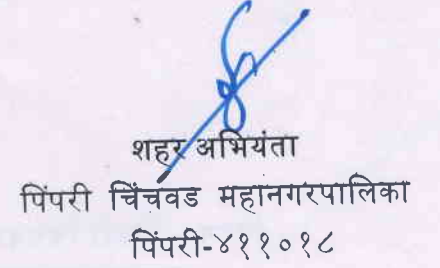 शहर अभियंता
पिंपरी चिंचवड महानगरपालिका
पिंपरी-४११०१८